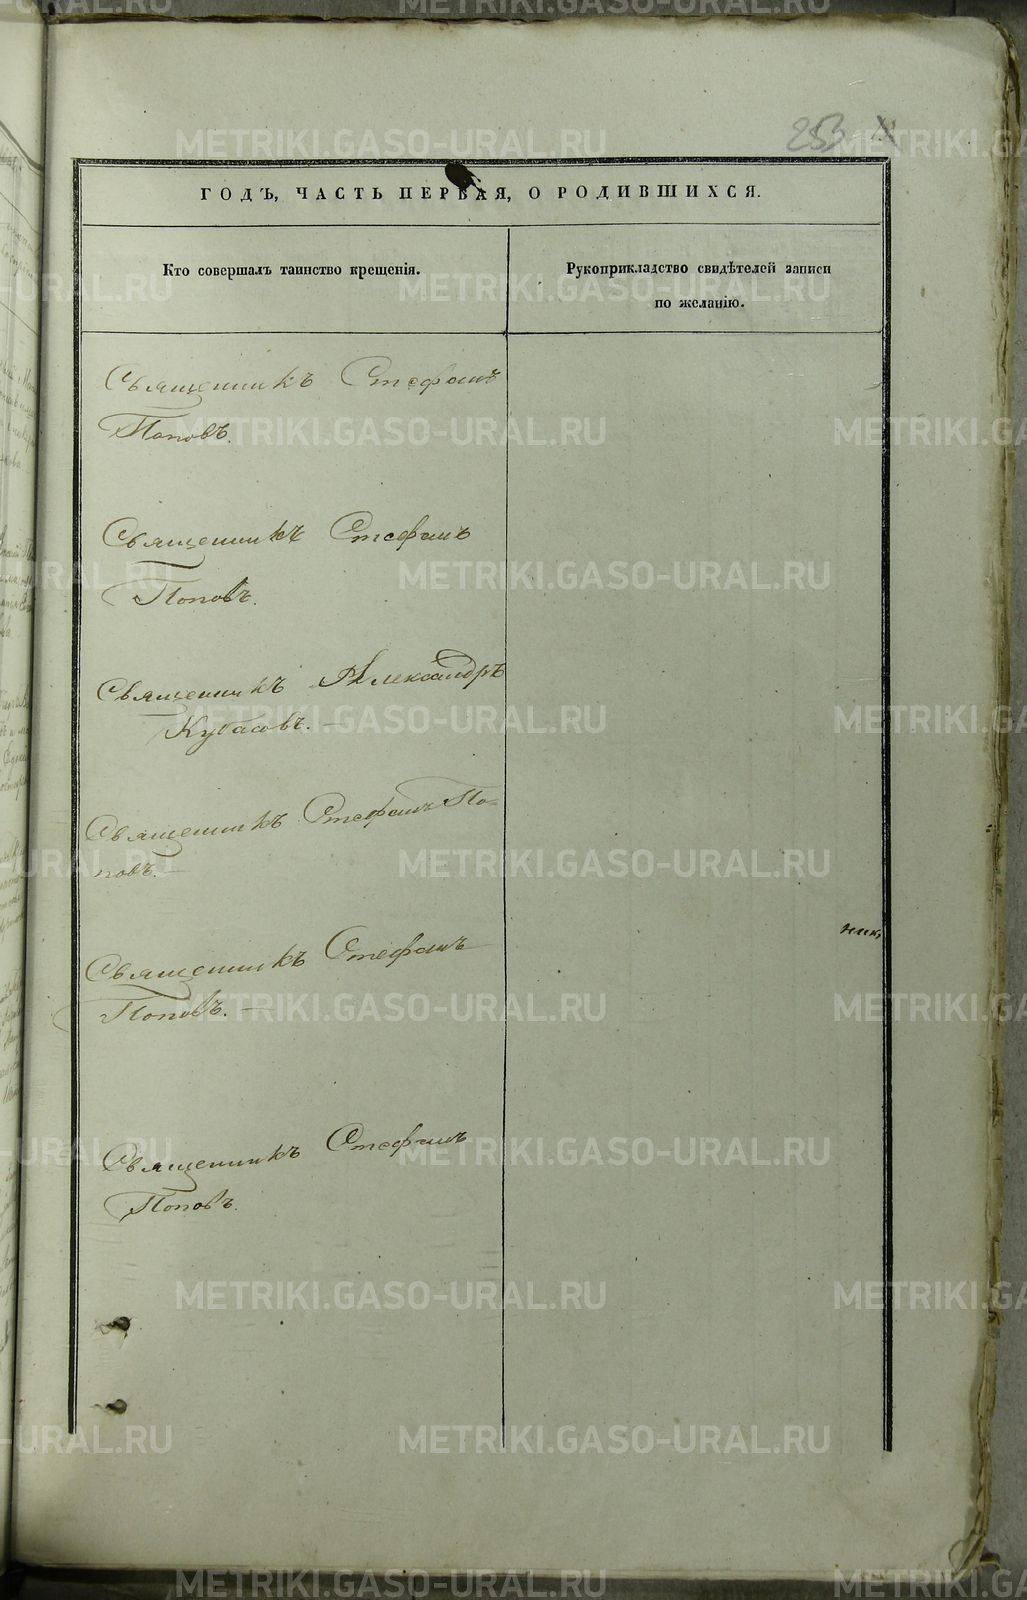 253
ГОДЪ, ЧАСТЬ ПЕРВАЯ, О РОДИВШИХСЯ.
Кто совершалъ таинство крещенія.
Рукоприкладство свидѣтелей записи
по желанію.
Священникъ Стефанъ
Поповъ.
Священникъ Стефанъ
Поповъ.
Священникъ Александръ
Кубасовъ. —
Священникъ Стефанъ По-
повъ. —
Священникъ Стефанъ
Поповъ. —
Священникъ Стефанъ
Поповъ.
METRIKI.GASO-URAL.RU